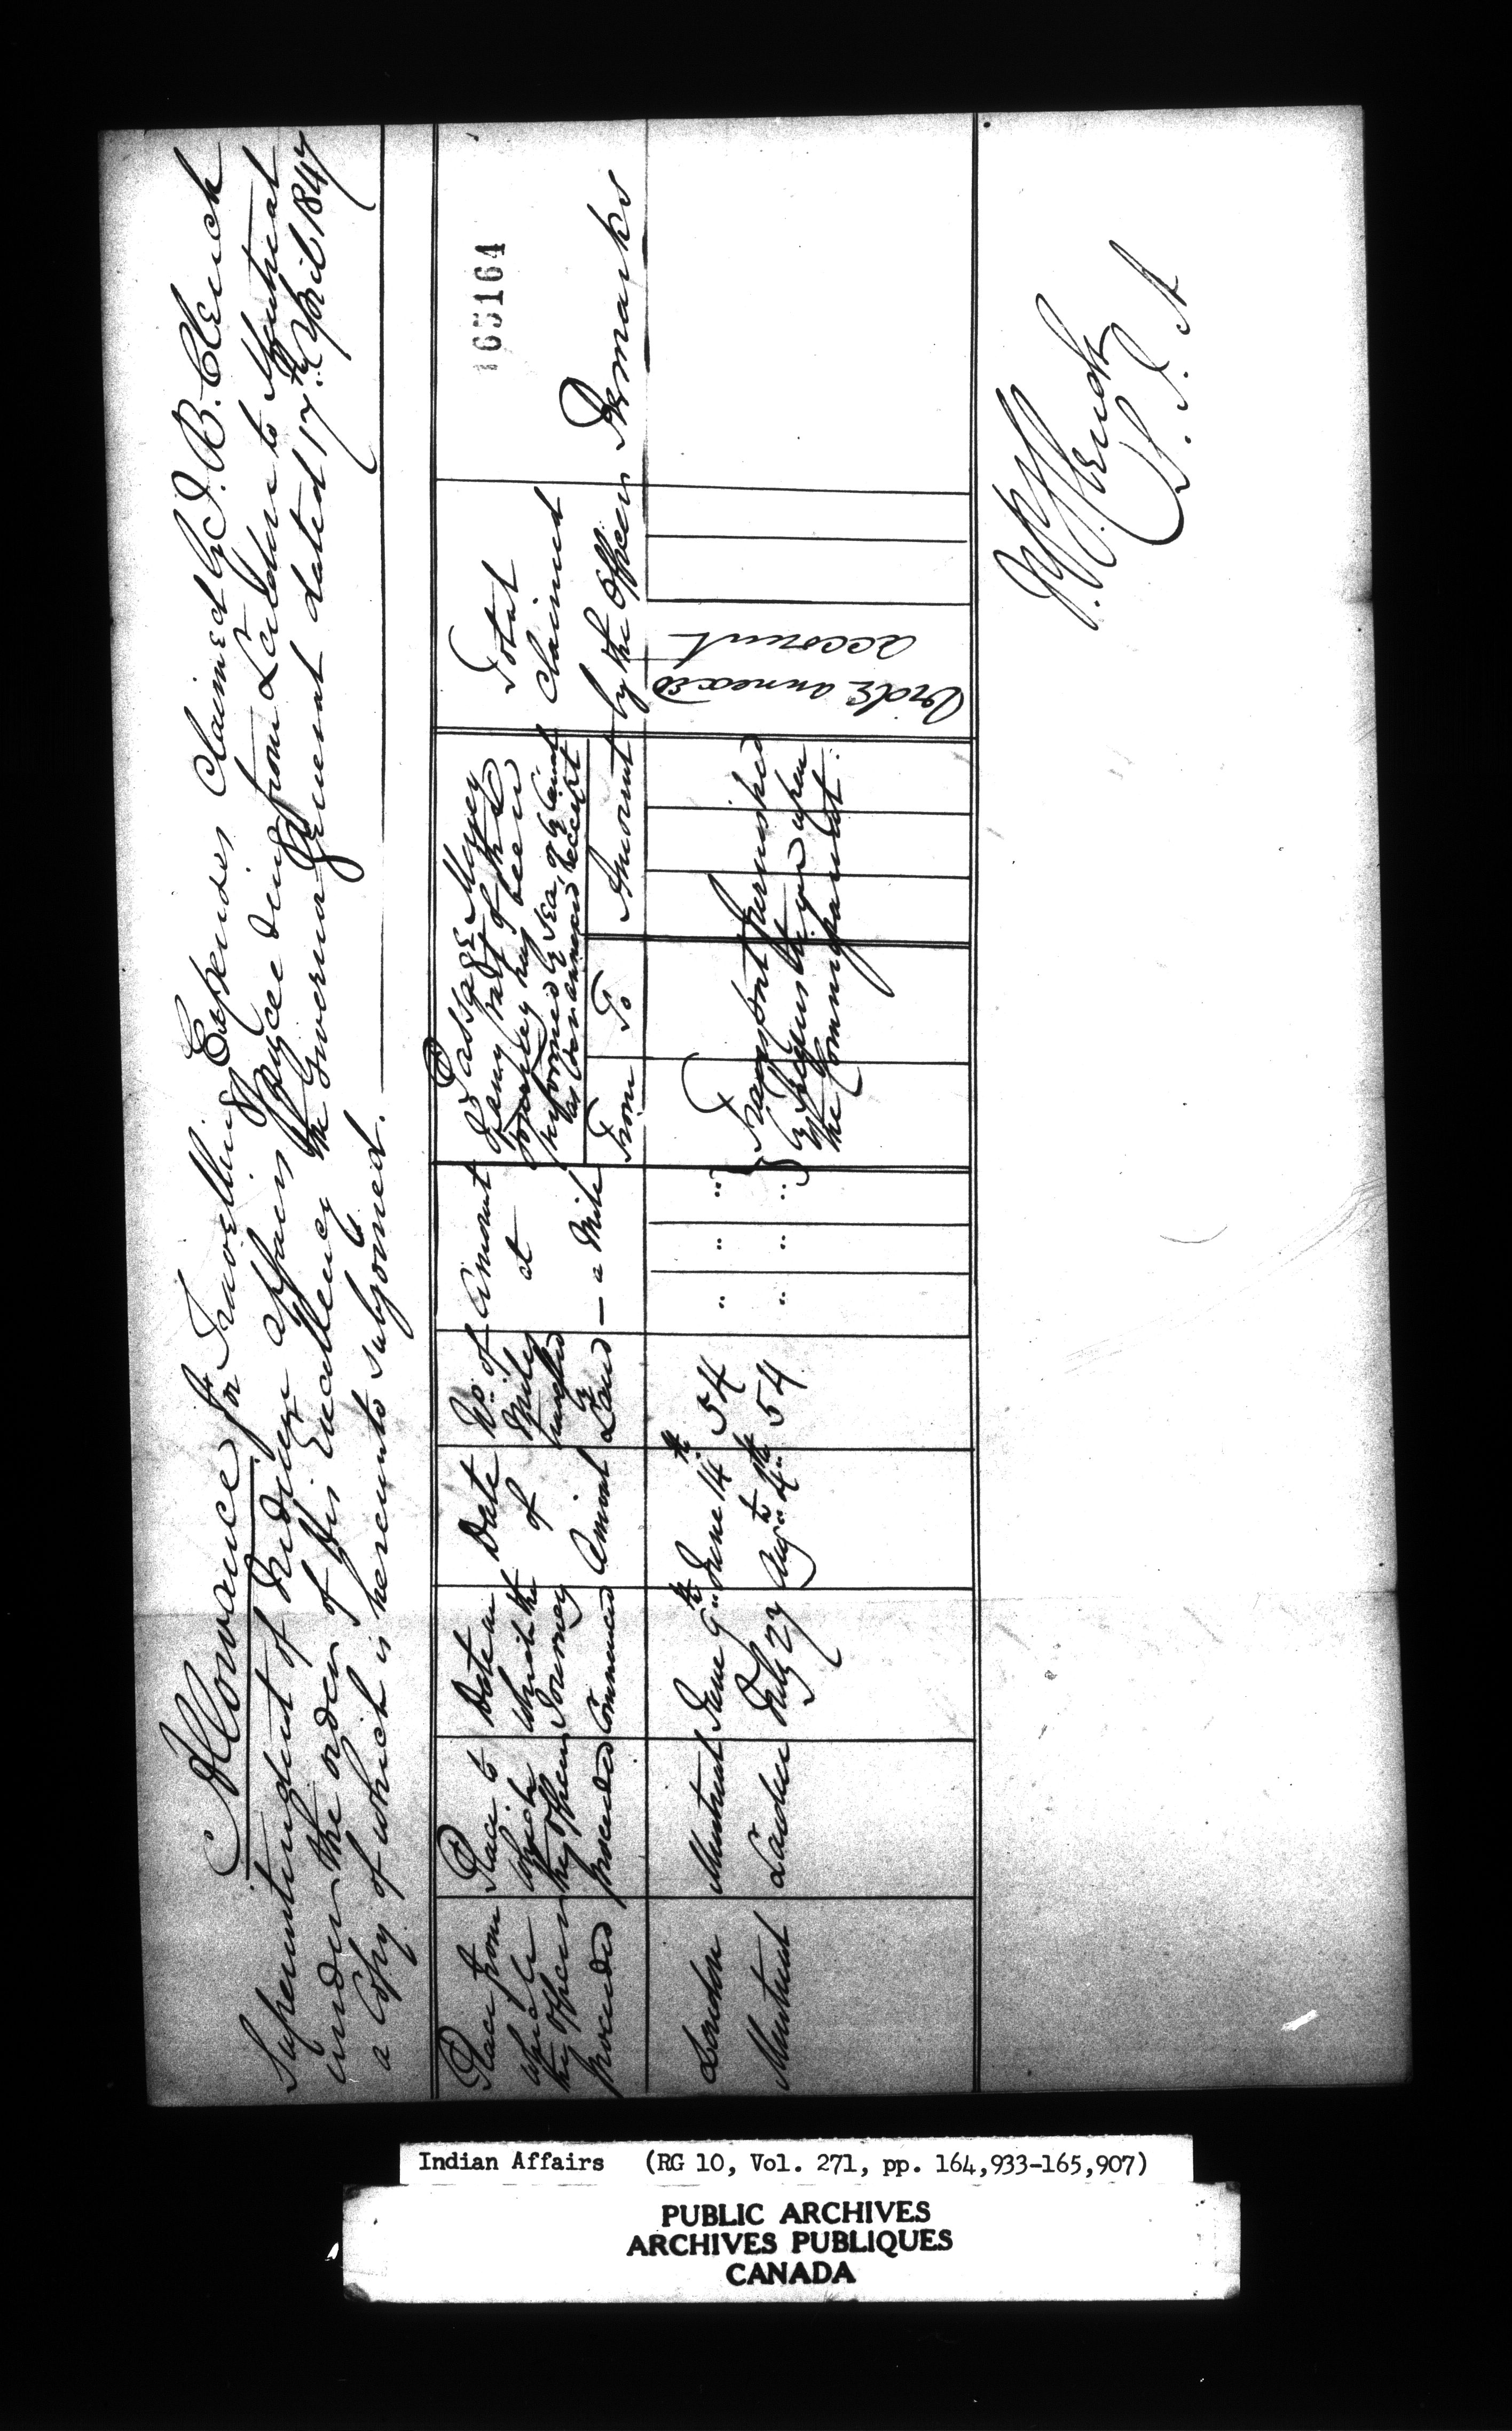 Allowance for Travelling Expenses Claimed by J. B. Clench
Superintendent of Indian affairs proceeding from London to Montreal
under the order of His Excellency the Governor General dated 17th April 1847
a Copy of which is hereunto subjoined.
165164
Place from which the Officer proceeded
Place to which the Officer proceeded
Date on which the Journey Commenced
Date of Arrival
No. of Miles travelled by Land
Amount at — a Mile
Passage Money if any part of the Journey has been performed by Sea, or by Canal
From To Amount
Total Claimed by the Officer
Remarks
London Montreal June 9th June 14th 54 " " "
Montreal London July 27 Augt 4th 54 " " "
Transport furnished
by Requisition upon
the Commissariat.
Vide annexed
account
J. B. Clench
S. I. A
Indian Affairs (RG 10, Vol. 271, pp. 164,933-165,907)
PUBLIC ARCHIVES
ARCHIVES PUBLIQUES
CANADA